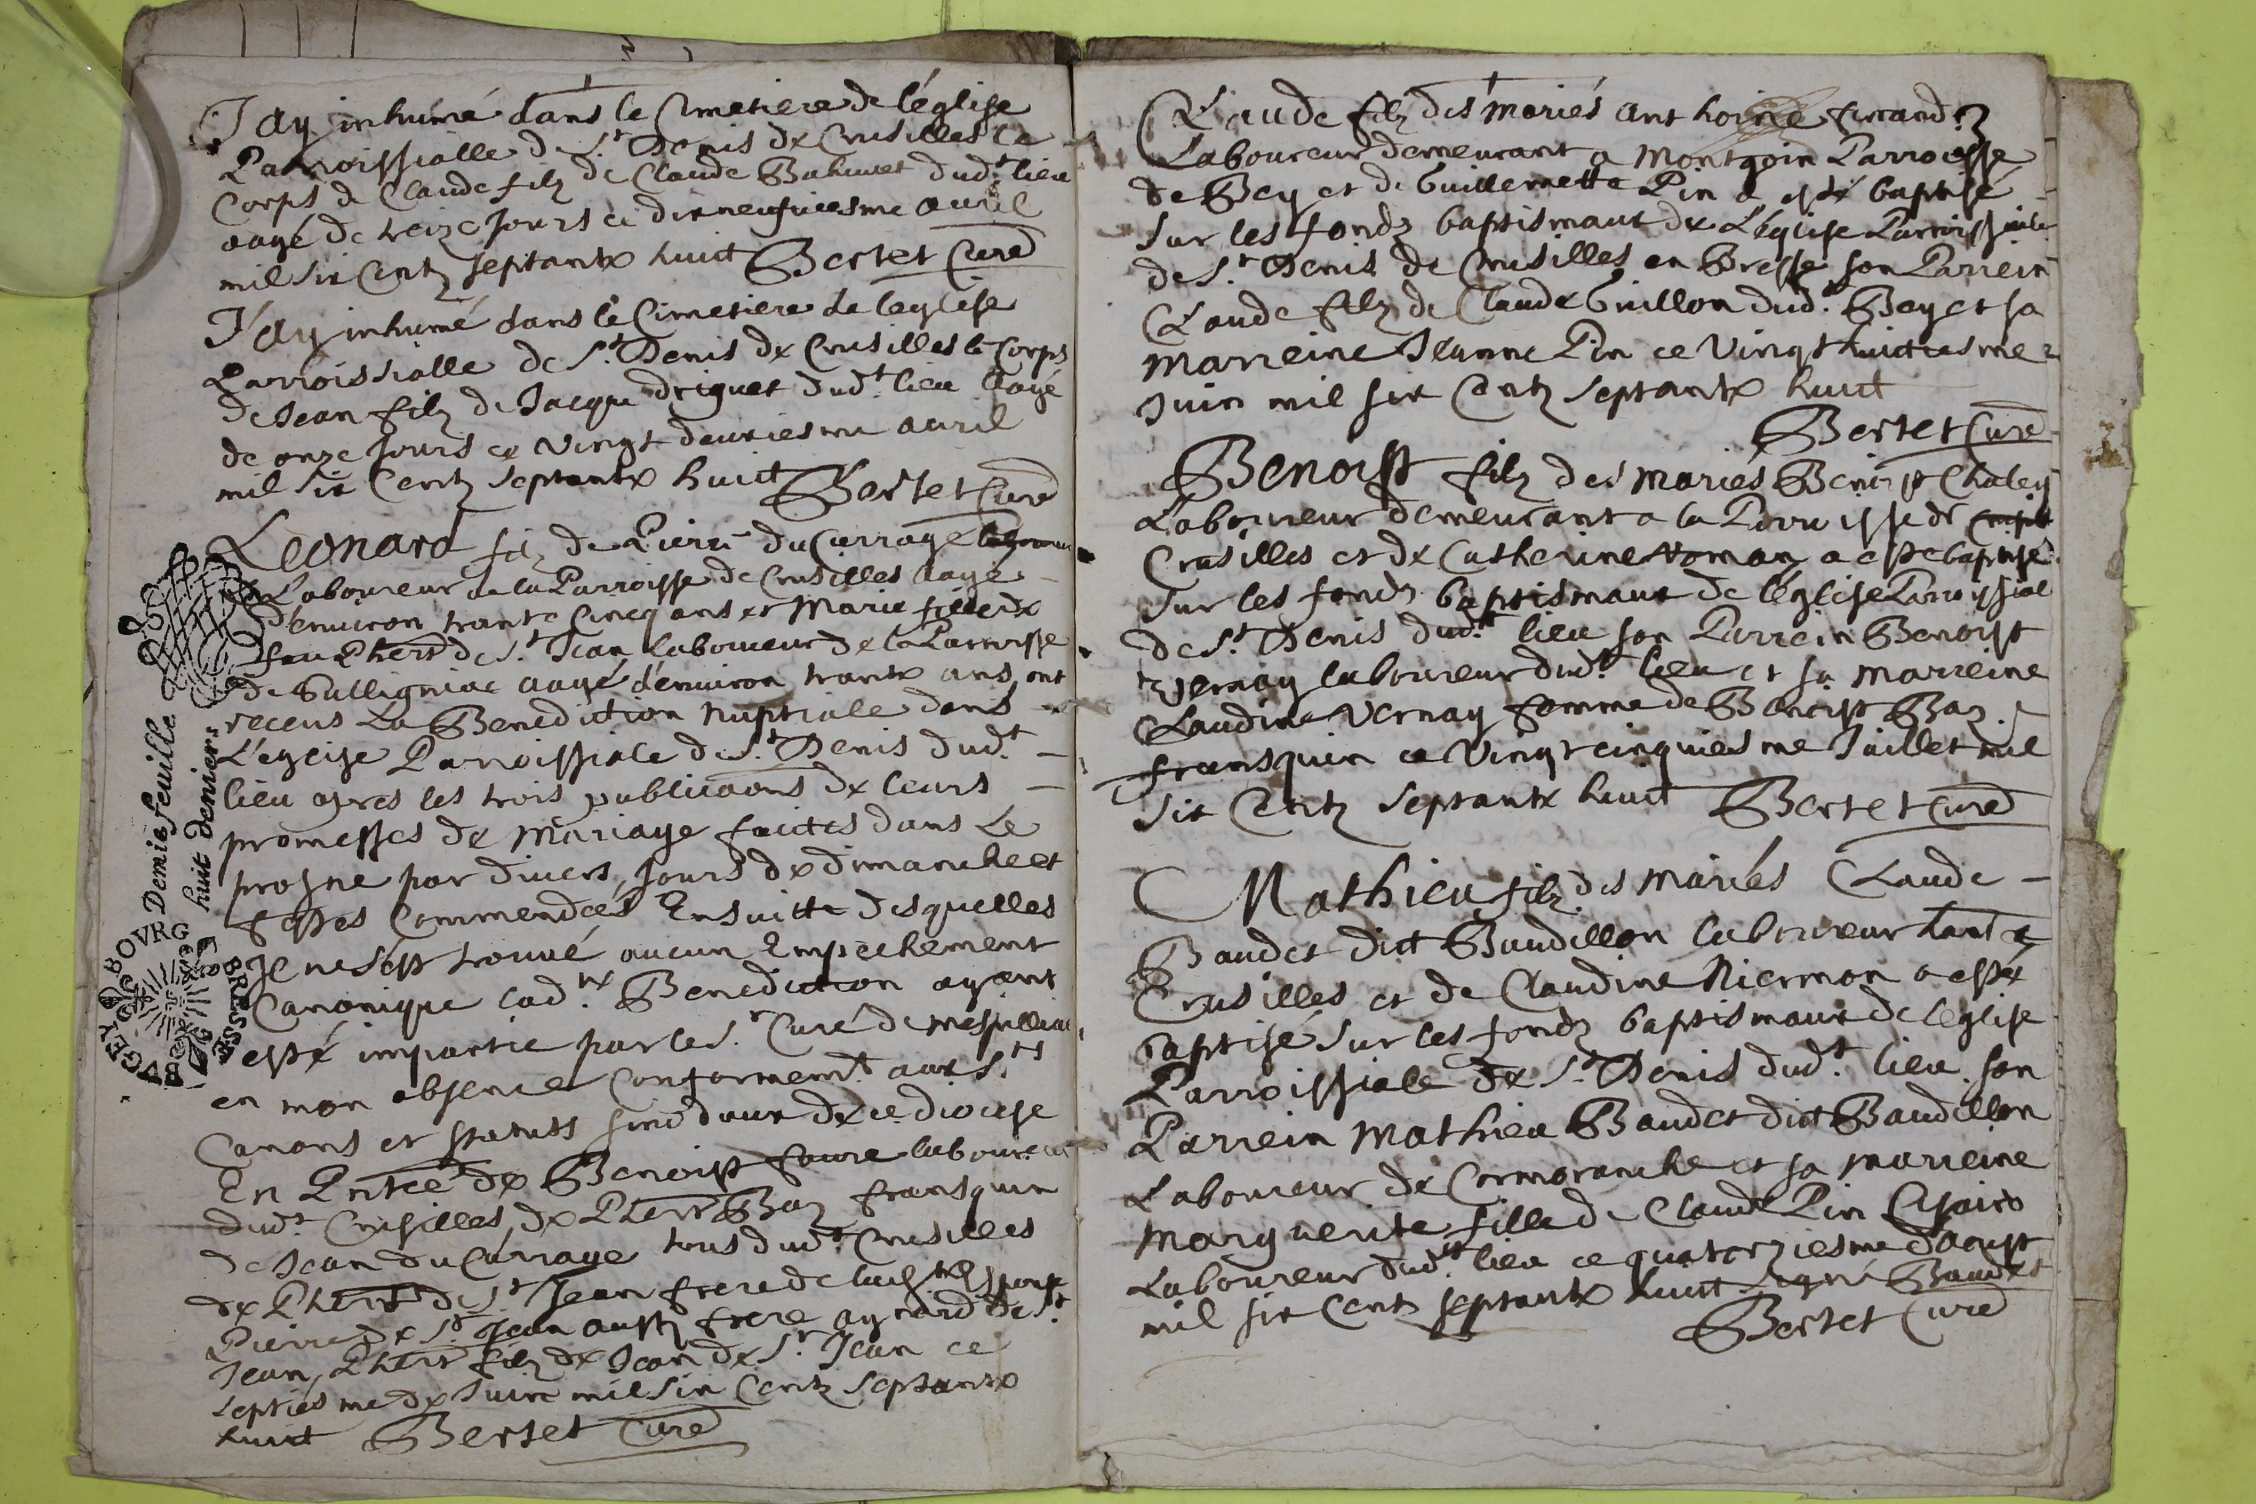 J'ay inhumé dans le Cimetiere de l'église
Parroissialle de St Denis de Crusilles le
Corps de Claude filz de Claude dudt lieu
aagé de treize Jours ce dixneufviesme avril
mil six Centz septante huict Bertet Curé
J'ay inhumé dans le Cimetiere de l'eglise
Parroissialle de St Denis de Crusilles le Corps
de Jean filz de Jacque driguet dudt lieu aagé
de onze Jours ce vingt deuxiesme avril
mil six Centz septante huict Bertet Curé
Leonard filz de Pierre du Currage
Laboureur de la Parroisse de Crusilles aagé
d'environ trante Cincq ans et Marie fille de
feu Phert de St Jean laboureur de la Parroisse
de aagé d'environ trante ans ont
receus La Benediction Nuptiale dans
L'eglise Parroissiale de St Denis dudt
lieu apres les trois publications de leurs
promesses de Mariage faictes dans le
prosne par divers Jours de dimanche et
festes Commendées Ensuitte desquelles
Il ne s'est trouvé aucun Empechement
Canonique lad.te Benediction ayant
esté impartie par le Sr Curé de
en mon absence Conformemt aux Sts
Canons et statuts sinodaux de ce diocese
En Pntce de Benoist favre laboureur
dudt Crusilles, de Phert Baz fransquin
de Jean du Currage tous dudt Crusilles
de Phert de St Jean frere de espouse
Pierre de St Jean aussy frere aynard de St
Jean, Phert filz de Jean de St Jean ce
septiesme de Juin mil six Centz septante
huict Bertet Curé
Demie feuille
huit deniers
BOVRG BRESSE BVGEY
Claude filz des mariés anthoine ferrand
Laboureur demeurant a Montgoin Parroisse
de Bey et de Guillemette Pin a esté baptisé
sur les fondz baptismaux de L'église Parroissiale
de St Denis de Crusilles en Bresse son Parrein
Claude filz de Claude Guillon dudt Bey et sa
Marreine Jeanne Pin ce vingt huictiesme
Juin mil six Centz septante huict
Bertet Curé
Benoist filz des mariés Benoist Chaley
Laboureur demeurant a la Parroisse de
Crusilles et de Catherine a esté baptisé
sur les fondz baptismaux de l'église Parroissial
de St Denis dudt lieu son Parrein Benoist
Vernay laboureur dudt lieu et sa marreine
Claudine Vernay femme de Benoist Baz
fransquin ce Vingt cinquiesme Juillet mil
six Centz septante huict Bertet Curé
Mathieu filz des mariés Claude
Baudet dict Baudillon laboureur
Crusilles et de Claudine Niermon a esté
baptisé sur les fondz baptismaux de l'eglise
Parroissiale de St Denis dudt lieu son
Parrein Mathieu Baudet dict Baudillon
Laboureur de Cormoranche et sa marreine
Marguerite fille de Claude Pin
Laboureur dudt lieu ce quatorziesme d'aoust
mil six Centz septante huict signé Baudet
Bertet Curé